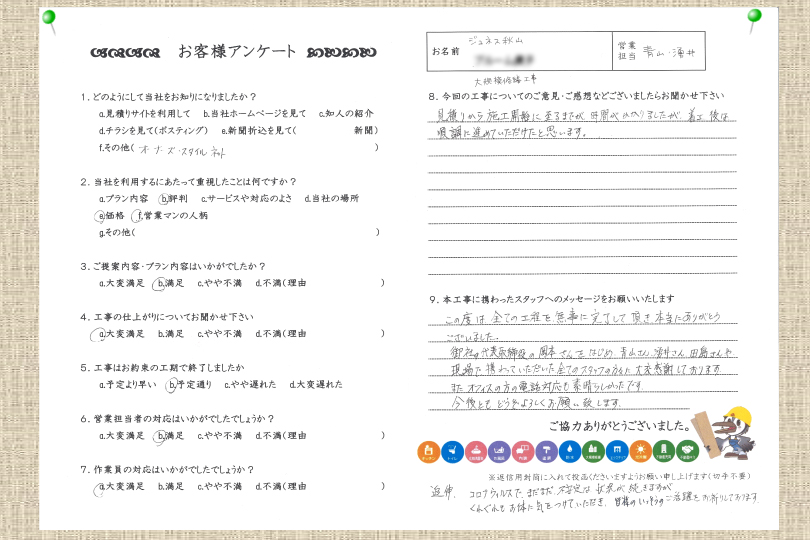 お客様アンケート
1. どのようにして当社をお知りになりましたか？
a.見積りサイトを利用して b.当社ホームページを見て c.知人の紹介
d.チラシを見て(ポスティング) e.新聞折込を見て( 新聞)
f.その他( オーナーズ・スタイルネット )
2. 当社を利用するにあたって重視したことは何ですか？
a.プラン内容 b.評判 c.サービスや対応のよさ d.当社の場所
e.価格 f.営業マンの人柄
g.その他( )
3. ご提案内容・プラン内容はいかがでしたか？
a.大変満足 b.満足 c.やや不満 d.不満(理由 )
4. 工事の仕上がりについてお聞かせ下さい
a.大変満足 b.満足 c.やや不満 d.不満(理由 )
5. 工事はお約束の工期で終了しましたか
a.予定より早い b.予定通り c.やや遅れた d.大変遅れた
6. 営業担当者の対応はいかがでしたでしょうか？
a.大変満足 b.満足 c.やや不満 d.不満(理由 )
7. 作業員の対応はいかがでしたでしょうか？
a.大変満足 b.満足 c.やや不満 d.不満(理由 )
お名前 ジュネス秋山
営業担当 青山・湧井
大規模修繕工事
8. 今回の工事についてのご意見・ご感想などございましたらお聞かせ下さい
見積りから施工開始に至るまでが、時間がかかりましたが、着工後は
順調に進めていただけたと思います。
9. 本工事に携わったスタッフへのメッセージをお願いいたします
この度は、全ての工程を無事に完了して頂き本当にありがとう
ございました。
御社の代表取締役の岡本さんをはじめ、青山さん、湧井さん、田島さんや
現場で携わっていただいた全てのスタッフの方々に大変感謝しております。
またオフィスの方の電話対応も素晴らしかったです。
今後ともどうぞよろしくお願い致します。
ご協力ありがとうございました。
※返信用封筒に入れて投函くださいますようお願い申し上げます(切手不要)
追伸. コロナウィルスで、まだまだ不安定な状況が続きますが
くれぐれもお体に気をつけていただき、皆様のいっそうのご活躍をお祈りしております